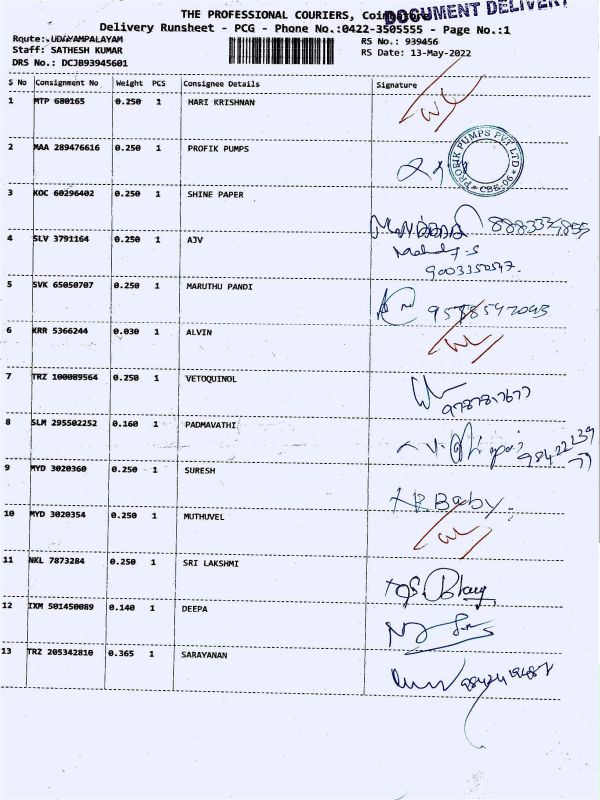 THE PROFESSIONAL COURIERS, Coimbatore
DOCUMENT DELIVERY
Delivery Runsheet - PCG - Phone No.:0422-3505555 - Page No.:1
Route: UDAYAMPALAYAM RS No.: 939456
Staff: SATHESH KUMAR RS Date: 13-May-2022
DRS No.: DCJB93945601
S No Consignment No Weight PCS Consignee Details Signature
1 MTP 680165 0.250 1 HARI KRISHNAN
2 MAA 289476616 0.250 1 PROFIK PUMPS
PROFIK PUMPS PVT LTD * CBE-06 *
3 KOC 60296402 0.250 1 SHINE PAPER
4 SLV 3791164 0.250 1 AJV
9003350547
5 SVK 65050707 0.250 1 MARUTHU PANDI
9578547093
6 KRR 5366244 0.030 1 ALVIN
7 TRZ 100089564 0.250 1 VETOQUINOL
8 SLM 295502252 0.160 1 PADMAVATHI
9 MYD 3020360 0.250 1 SURESH
Baby
10 MYD 3020354 0.250 1 MUTHUVEL
11 NKL 7873284 0.250 1 SRI LAKSHMI
12 IXM 501450089 0.140 1 DEEPA
13 TRZ 205342810 0.365 1 SARAYANAN